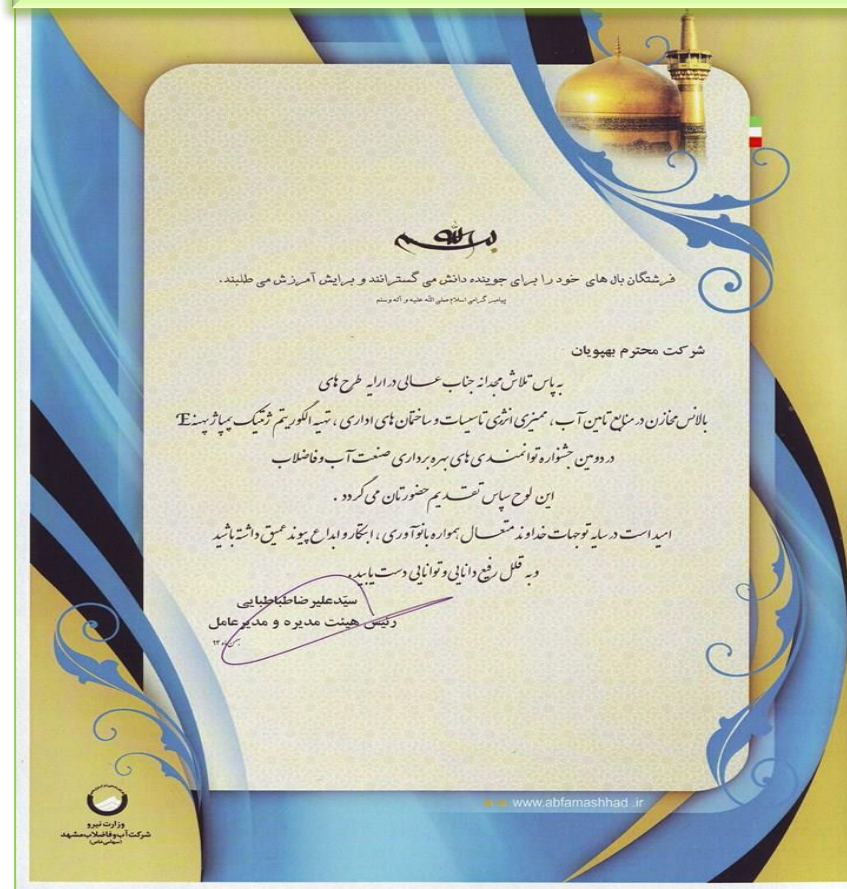 بسم الله
فرشتگان بال های خود را برای جوینده دانش می گسترانند و برایش آمرزش می طلبند.
پیامبر گرامی اسلام صلی الله علیه و آله وسلم
شرکت محترم بهپویان
به پاس تلاش مجدانه جناب عالی در ارایه طرح های
بالانس مخازن در منابع تامین آب ، ممیزی انرژی تاسیسات و ساختمان های اداری ، تهیه الگوریتم ژنتیک پمپاژ پهنه E
در دومین جشنواره توانمندی های بهره برداری صنعت آب و فاضلاب
این لوح سپاس تقدیم حضورتان می گردد .
امید است در سایه توجهات خداوند متعال همواره با نوآوری ، ابتکار و ابداع پیوند عمیق داشته باشید
و به قلل رفیع دانایی و توانایی دست یابید .
سیّدعلیرضا طباطبایی
رئیس هیئت مدیره و مدیرعامل
بهمن ماه ۹۳
www.abfamashhad.ir
وزارت نیرو
شرکت آب و فاضلاب مشهد
(سهامی خاص)